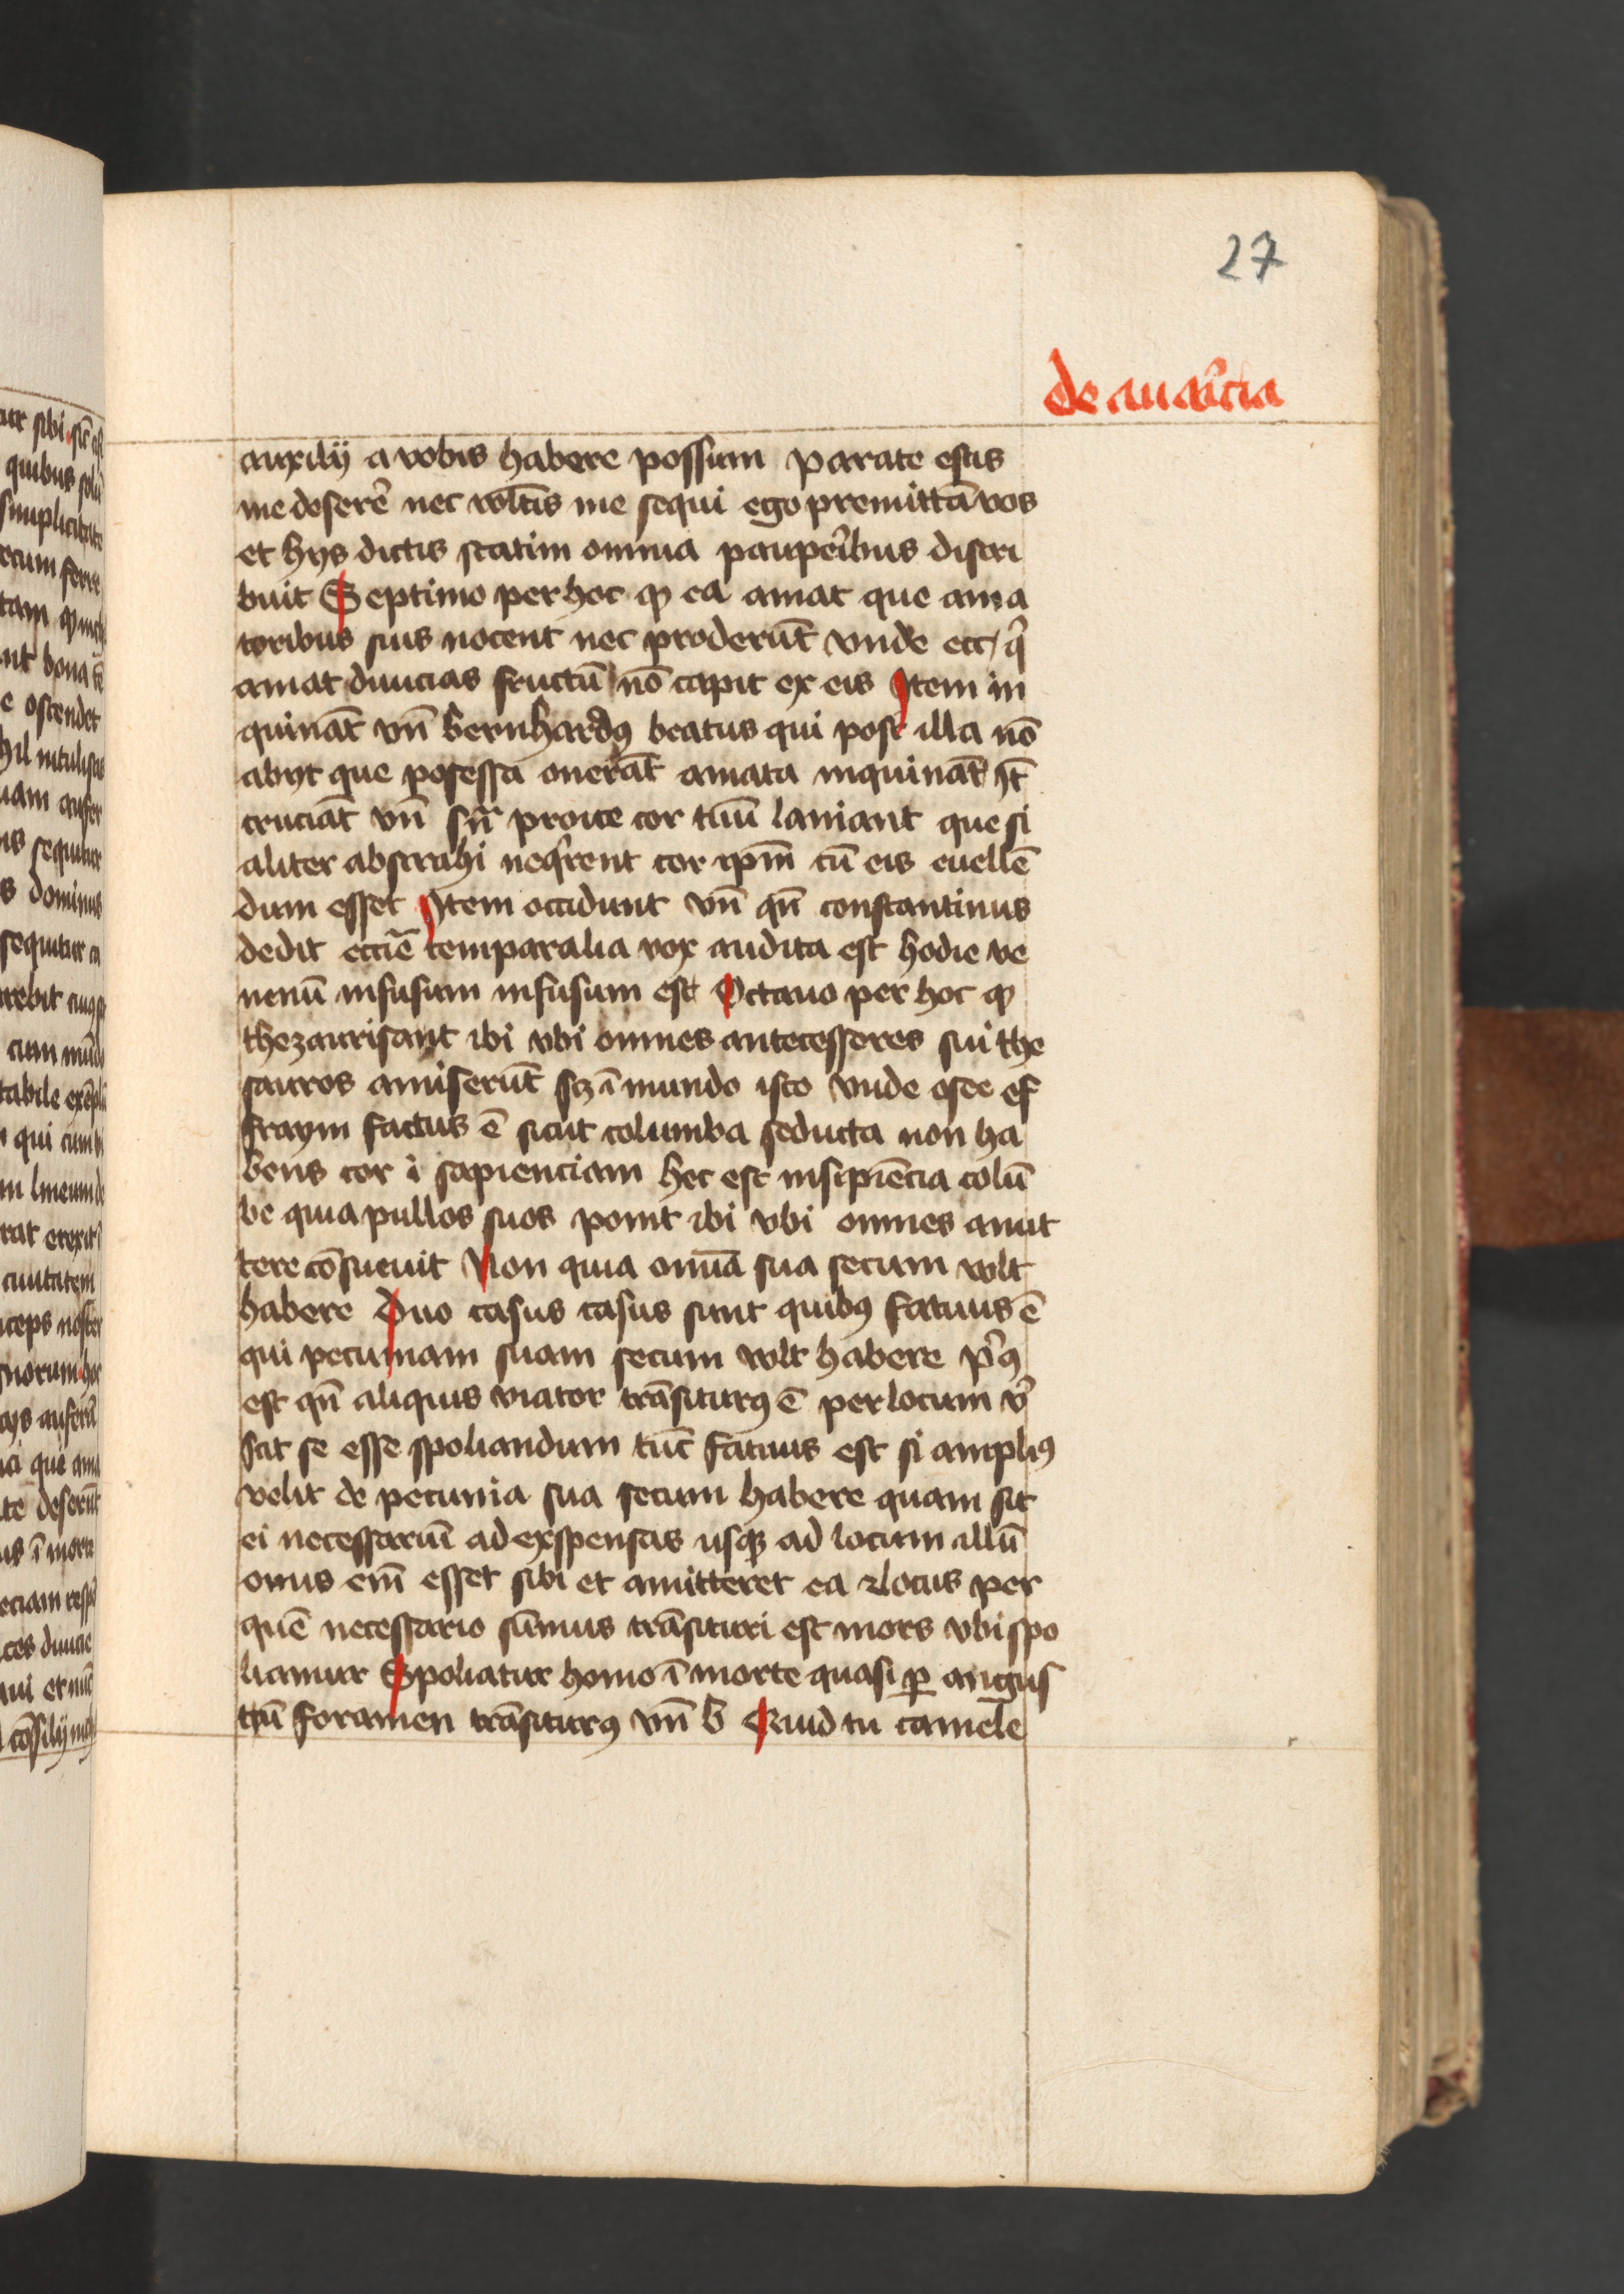 27
de auaricia
auxilij a vobis habere possum parate estis
me deserē nec vltis me sequi ego premittā vos
et hys dictis statim omnia pauperibus distri
buit Septimo per hoc qp ea amat que ama
toribus suis nocent nec proderūt vnde ecc
amat diuicias fructū nō capit ex eis Item in
quināt vn̄ bernhardꝰ beatus qui post illa nō
abyt que posessa onerāt amata inquināt It̄
cruciāt vn̄ proice cor tuū laniant que si
aliter abstrahi neqͥrent cor ip̄m cū eis euellē
dum esset Item occidunt vn̄ qn̄ constantinus
dedit eccīe temparalia vox audita est hodie ve
nenū infusum infusum est Octauo per hoc qp
thezaurisant ibi vbi omnes antecessores sui the
sauros amiserūt sz ī mundo isto vnde osee ef
fraym factus ē sicut columba seducta non ha
bens cor i sapienciam hec est insipiēcia colū
be quia pullos suos ponit ibi vbi omnes amit
tere cōsueuit Non quia omīa sua secum vlt
habere Duo casus casus sunt quibꝰ fatuus ē
qui pecuniam suam secum vlt habere pͥꝰ
est qn̄ aliquis viator trāsiturꝰ ē per locum vͥ
scit se esse spoliandum tūc fatuus est si ampliꝰ
velit de pecunia sua secum habere quam sit
ei necessariū ad expensas usqꝫ ad locum illū
onus em̄ esset sibi et amitteret ea 2 locus per
quē necessario sūmus trāsituri est mors vbi spo
liamur Spoliatur homo ī morte quasi ꝑ angus
tū foramen trāsiturꝰ vn̄ b Quid tu camele